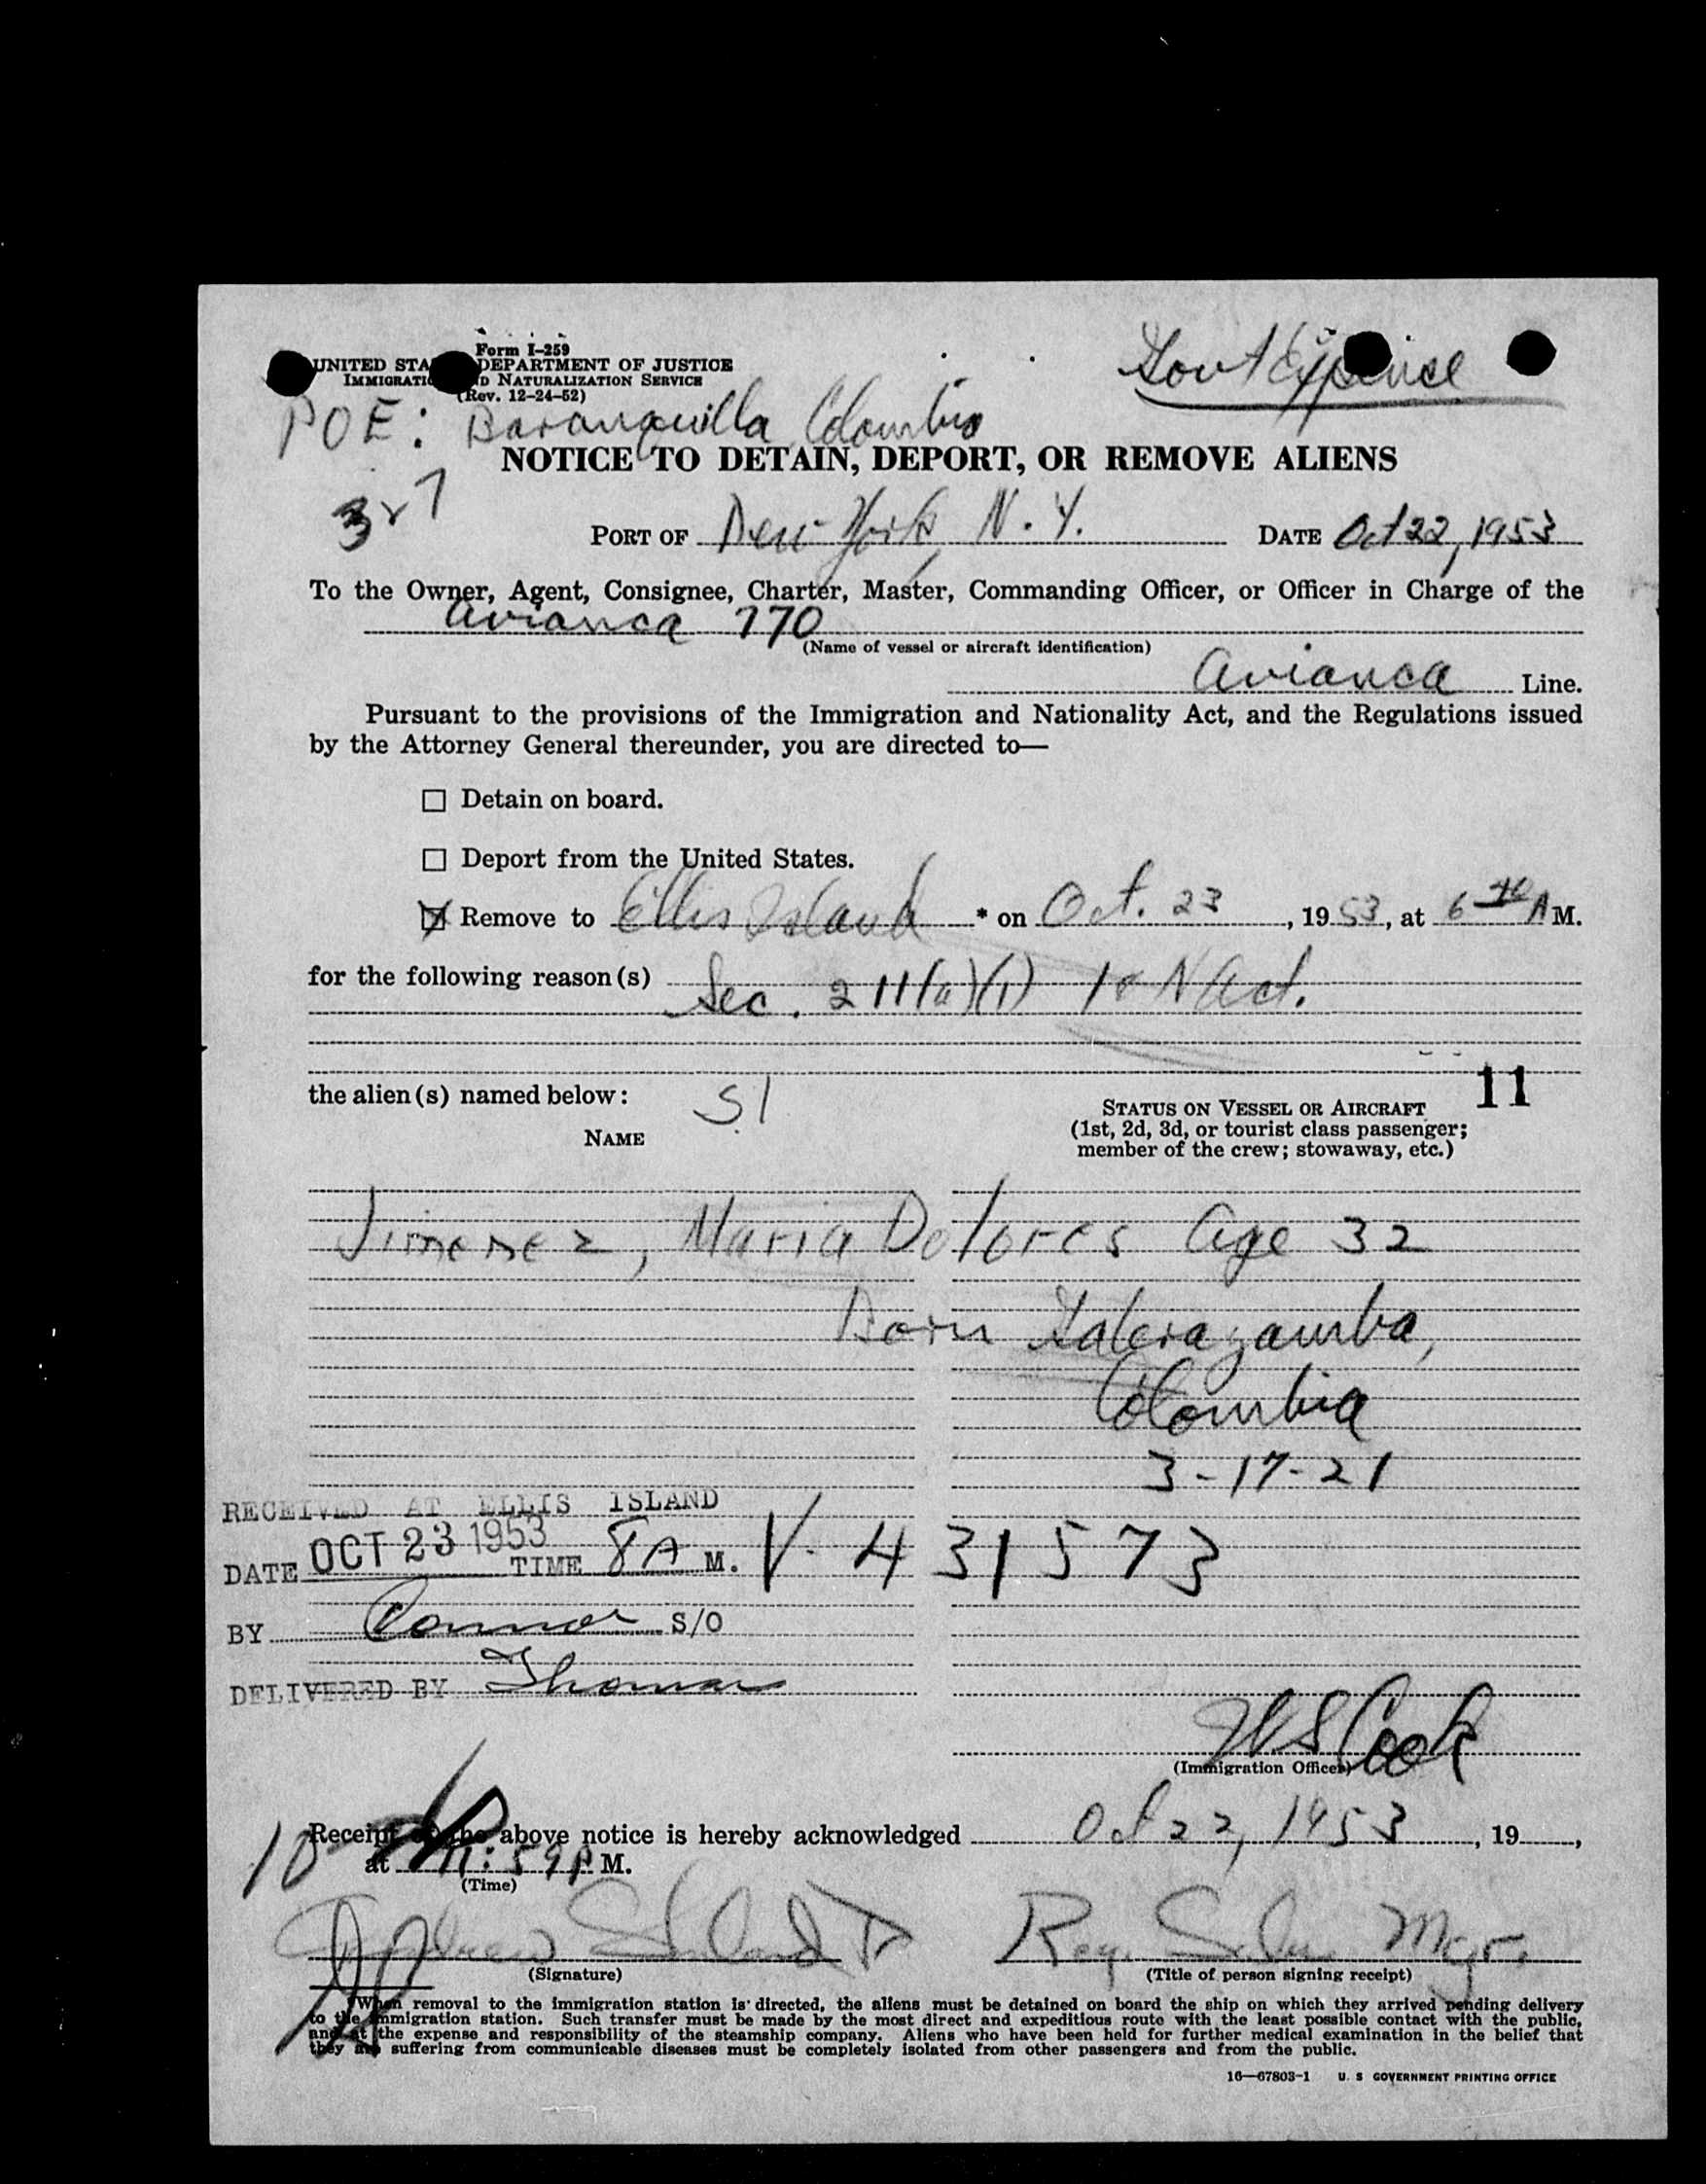 Form I-259
UNITED STA DEPARTMENT OF JUSTICE
IMMIGRATIO ND NATURALIZATION SERVICE
(Rev. 12-24-52)
Gov't Expense
POE: Baranquilla, Colombia
NOTICE TO DETAIN, DEPORT, OR REMOVE ALIENS
PORT OF New York, N.Y. DATE Oct 22, 1953
To the Owner, Agent, Consignee, Charter, Master, Commanding Officer, or Officer in Charge of the
Avianca 770
(Name of vessel or aircraft identification)
Avianca Line.
Pursuant to the provisions of the Immigration and Nationality Act, and the Regulations issued
by the Attorney General thereunder, you are directed to—
☐ Detain on board.
☐ Deport from the United States.
☒ Remove to Ellis Island * on Oct. 23, 1953, at 6 AM.
for the following reason(s) Sec. 211(a)(1) I & N Act.
the alien(s) named below: S1
11
NAME
STATUS ON VESSEL OR AIRCRAFT
(1st, 2d, 3d, or tourist class passenger;
member of the crew; stowaway, etc.)
Jimenez, Maria Dolores Age 32
Born Galerazamba,
Colombia
3-17-21
RECEIVED AT ELLIS ISLAND
DATE OCT 23 1953 TIME 8 A M. V-431573
BY Connor S/O
DELIVERED BY Thomas
Cook
(Immigration Officer)
Receipt of the above notice is hereby acknowledged Oct 22, 1953, 19 ,
at 11:59 P M.
(Time)
Mgr.
(Signature) (Title of person signing receipt)
*When removal to the immigration station is directed, the aliens must be detained on board the ship on which they arrived pending delivery
to the immigration station. Such transfer must be made by the most direct and expeditious route with the least possible contact with the public,
and at the expense and responsibility of the steamship company. Aliens who have been held for further medical examination in the belief that
they are suffering from communicable diseases must be completely isolated from other passengers and from the public.
16—67803-1 U. S GOVERNMENT PRINTING OFFICE